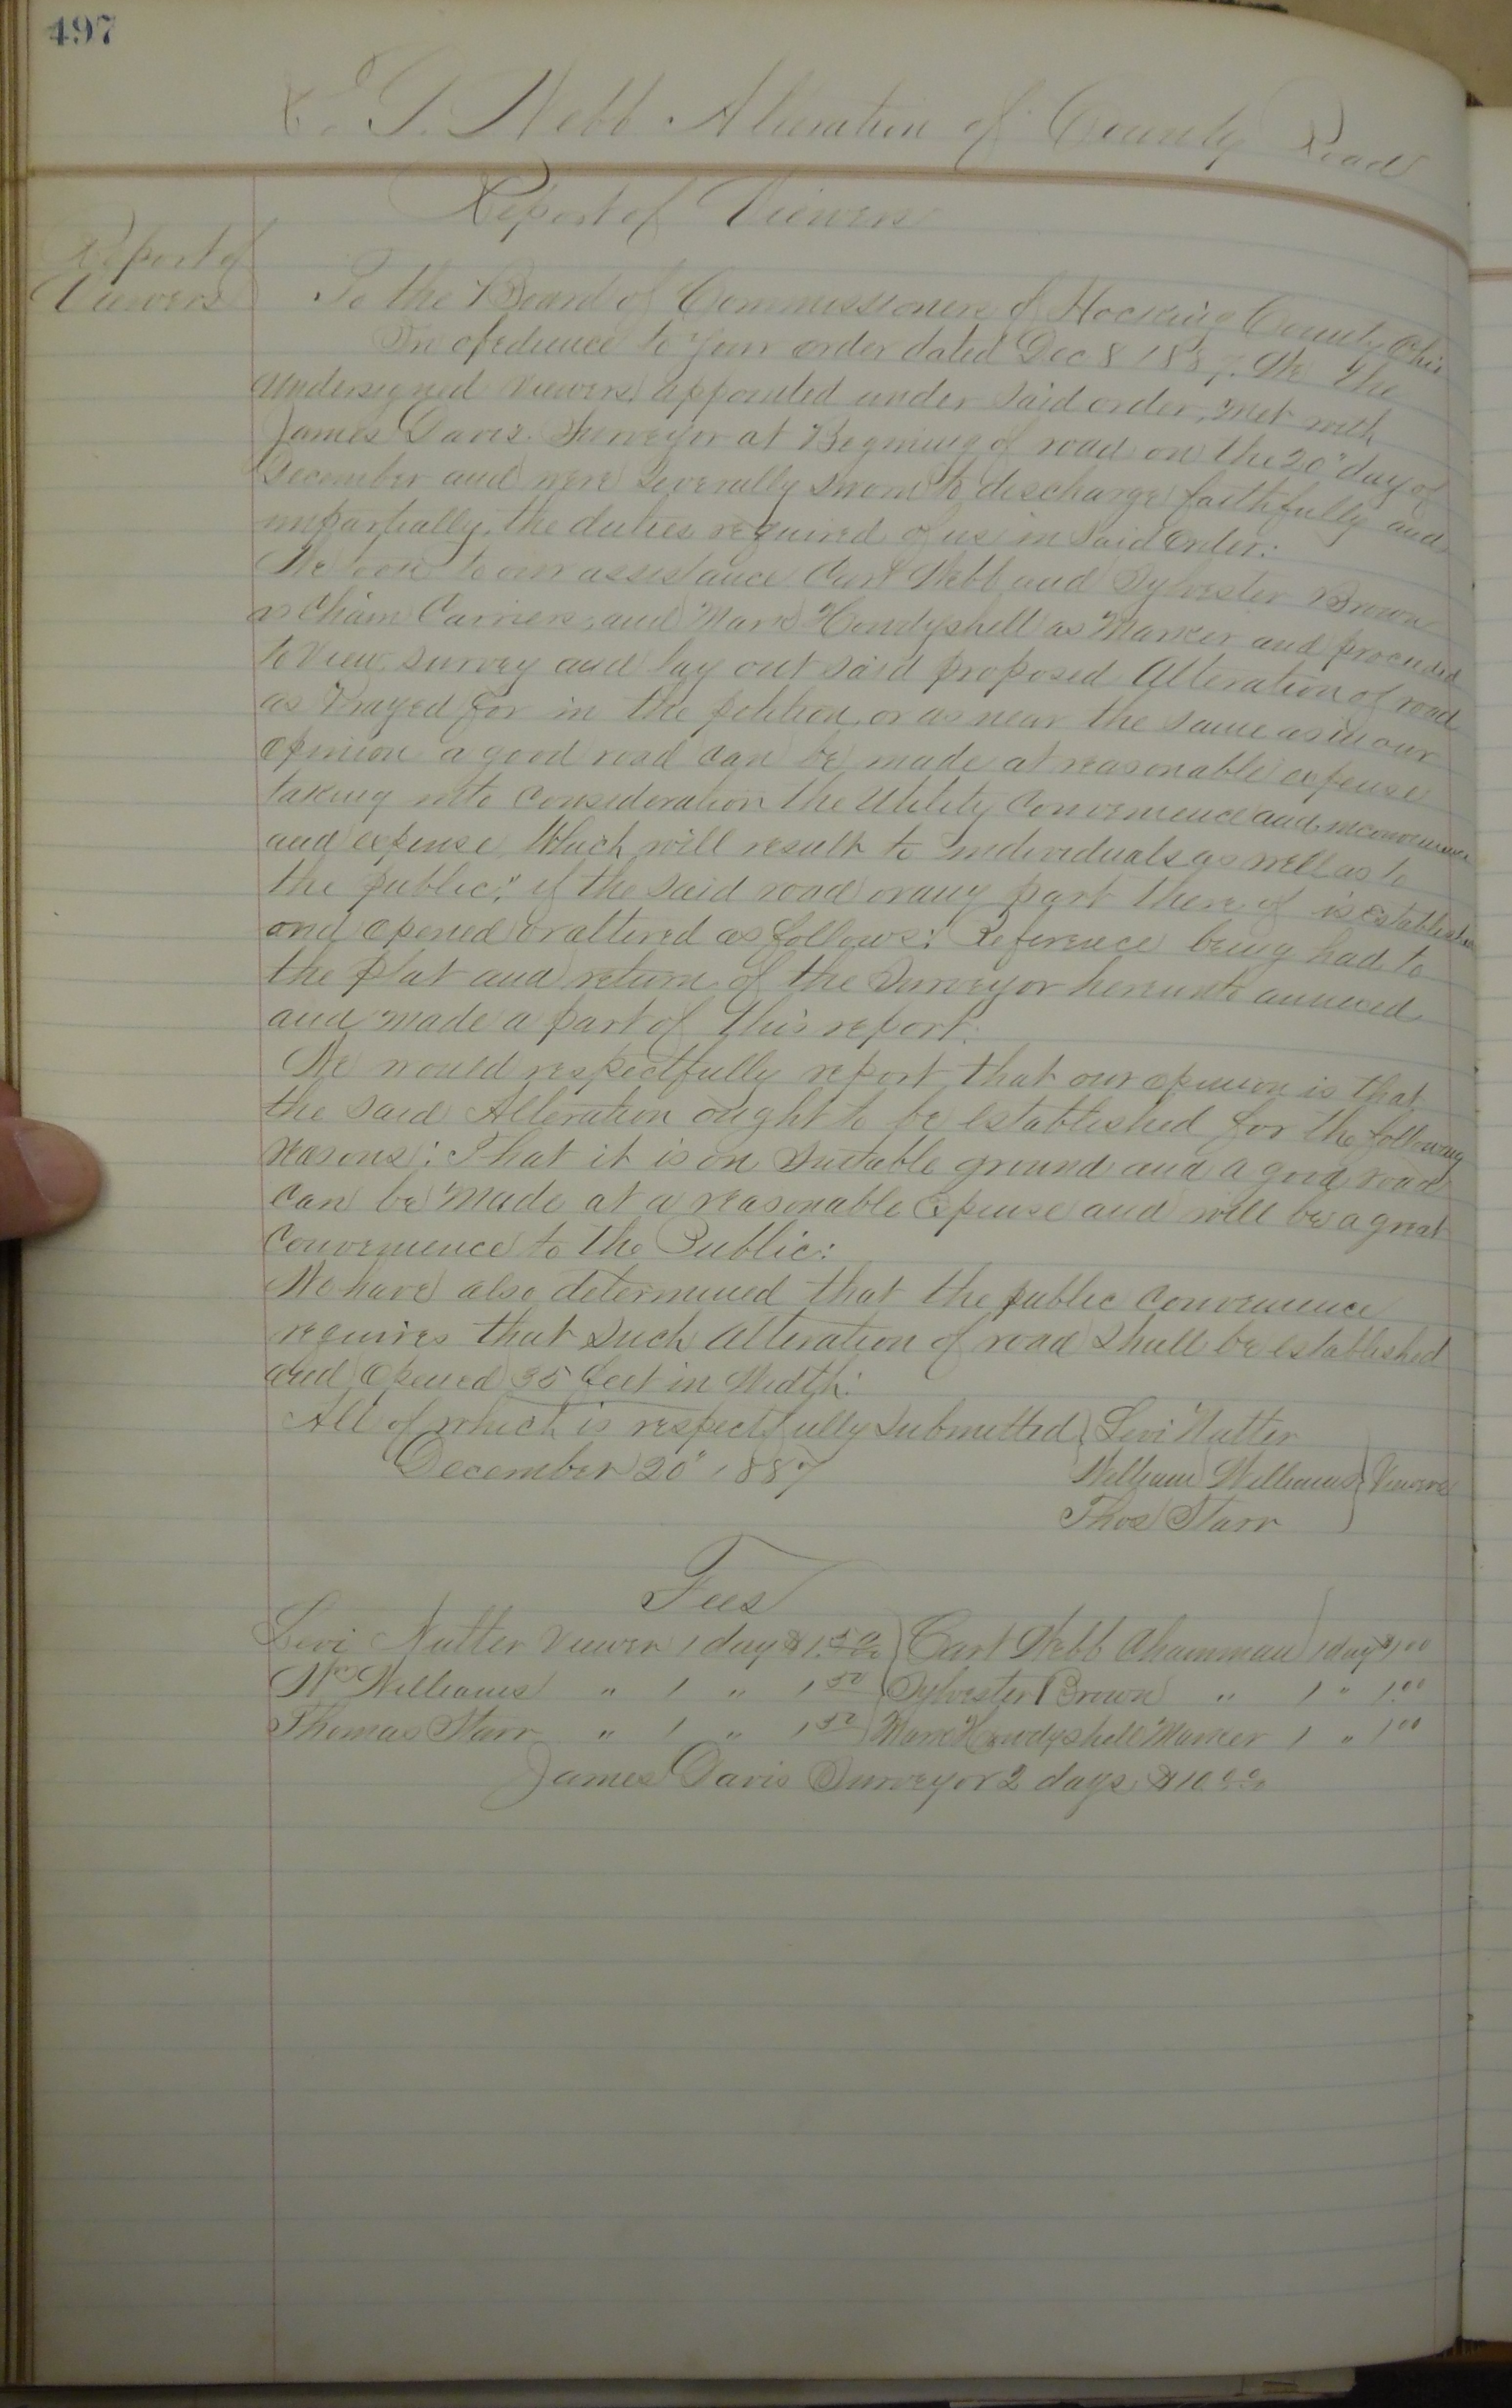 497
G. T. Webb Alteration of County Road
Report of Viewers
Report of
Viewers
To the Board of Commissioners of Hocking County Ohio
In obedience to your order dated Dec 8 1887. We the
undersigned viewers, appointed under said order, met with
James Davis. Surveyor at Begining of road on the 20" day of
December and were Severally Sworn to discharge faithfully and
impartially, the duties required of us in said order:
We took to our assistance Curt Webb and Sylvester Brown
as Chain Carriers, and Mark Howdyshell as Marker and proceeded
to View, survey and lay out said proposed Alteration of road
as Prayed for in the petition, or as near the same as in our
opinion a good road can be made at reasonable expense
taking into consideration the Utility Convenience and inconvenience
and expense, Which will result to individuals as well as to
the public; if the said road or any part there of is established
and opened or altered as follows: Reference being had to
the plat and return of the Surveyor hereunto annexed
and made a part of this report.
We would respectfully report that our opinion is that
the said Alteration ought to be established for the following
reasons: That it is on Suitable ground and a good road
can be made at a reasonable Expense and will be a great
convenience to the Public:
We have also determined that the public convenience
requires that such alteration of road shall be established
and opened 35 feet in Width:
All of which is respectfully submitted Levi Nutter
December 20" 1887 William Williams Viewers
Thos Starr
Fees
Levi Nutter Viewer 1 day $1.50 Curt Webb Chainman 1 day $1.00
Wm Williams " 1 " 1.50 Sylvester Brown " 1 " 1.00
Thomas Starr " 1 " 1.50 Mark Howdyshell Marker 1 " 1.00
James Davis Surveyor 2 days $10.00